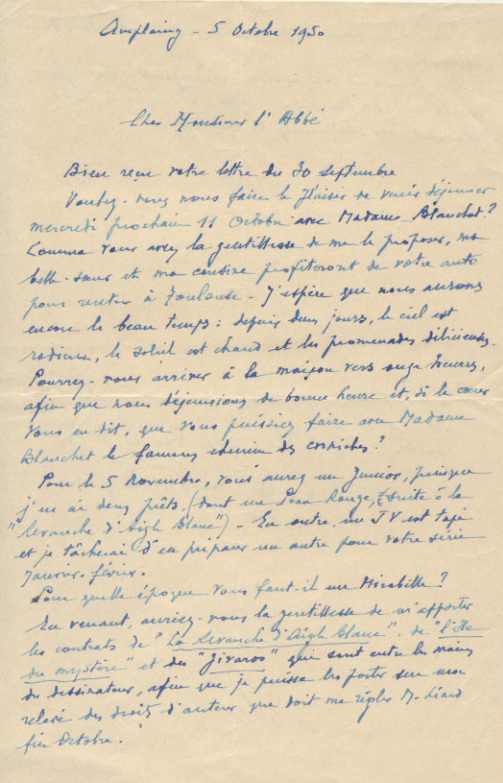 Amplaing - 5 Octobre 1950
Cher Monsieur l'Abbé
Bien reçu votre lettre du 30 septembre
Voulez-vous nous faire le plaisir de venir déjeuner
mercredi prochain 11 Octobre avec Madame Blanchet ?
Comme vous avez la gentillesse de me le proposer, ma
belle-sœur et ma cousine profiteront de votre auto
pour rentrer à Toulouse - J'espère que nous aurons
encore le beau temps : depuis deux jours, le ciel est
radieux, le soleil est chaud et les promenades délicieuses.
Pourrez-vous arriver à la maison vers onze heures,
afin que nous déjeunions de bonne heure et, si le cœur
vous en dit, que vous puissiez faire avec Madame
Blanchet le fameux chemin des corniches ?
Pour le 5 Novembre, vous aurez un Junior, puisque
j'en ai deux prêts, (dont un Peau Rouge, suite à la
"Revanche d'Aigle Blanc") - En outre, un JV est tapé
et je tâcherai d'en préparer un autre pour votre série
Janvier-février.
Pour quelle époque vous faut-il un Mirabelle ?
En venant, auriez-vous la gentillesse de m'apporter
les contrats de "La Revanche d'Aigle Blanc" - de "l'Ile
du mystère" et des "Jivaros" qui sont entre les mains
du dessinateur, afin que je puisse les porter sur mon
relevé des droits d'auteur que doit me régler M.
fin Octobre.